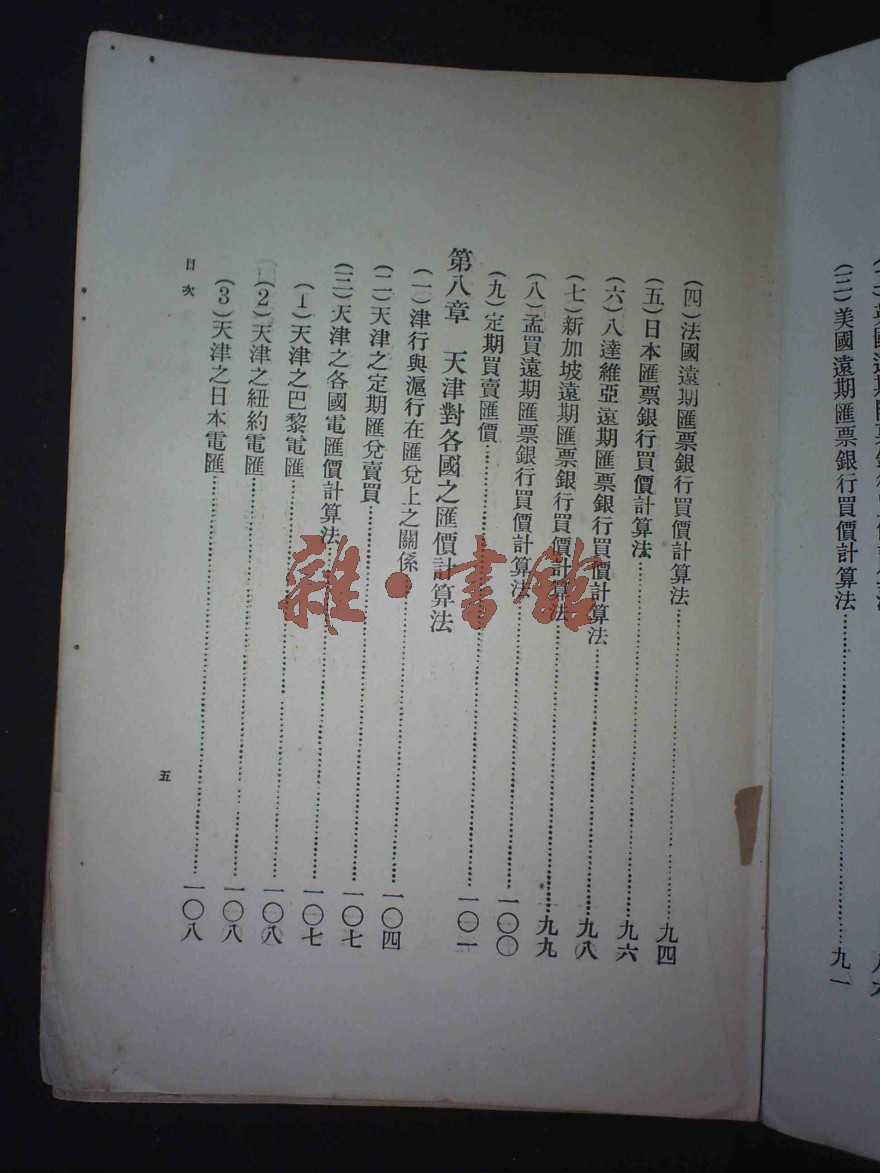 (三)美國遠期匯票銀行買價計算法……九一
(四)法國遠期匯票銀行買價計算法……九四
(五)日本匯票銀行買價計算法……九六
(六)八達維亞遠期匯票銀行買價計算法……九八
(七)新加坡遠期匯票銀行買價計算法……九九
(八)孟買遠期匯票銀行買價計算法……一〇〇
(九)定期買賣匯價……一〇一
第八章 天津對各國之匯價計算法
(一)津行與滬行在匯兌上之關係……一〇四
(二)天津之定期匯兌賣買……一〇七
(三)天津之各國電匯價計算法……一〇七
(1)天津之巴黎電匯……一〇八
(2)天津之紐約電匯……一〇八
(3)天津之日本電匯……一〇八
目次
五
雜·書館